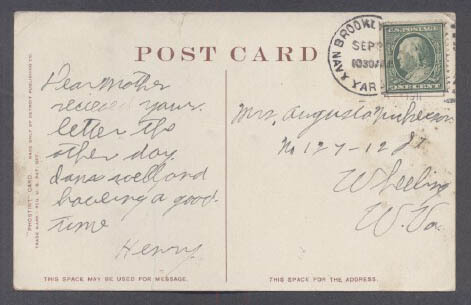 POST CARD
BROOKLYN
NAVY YARD
SEP
1030 AM
U.S. POSTAGE
ONE CENT
Dear Mother
recieved your
letter the
other day.
I am well and
haveing a good
time
Henry
Mrs. Augusta
No 127-12
Wheeling
W. Va.
"PHOSTINT" CARD MADE ONLY BY DETROIT PUBLISHING CO.
TRADE MARK REG. U.S. PAT. OFF.
THIS SPACE MAY BE USED FOR MESSAGE.
THIS SPACE IS FOR THE ADDRESS.